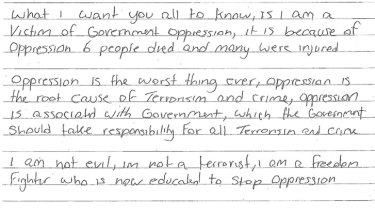 What I want you all to know, is I am a
Victim of Government Oppression, it is because of
Oppression 6 people died and many were injured
Oppression is the worst thing ever, oppression is
the root cause of Terrorsim and crime, oppression
is associatd with Government, which the Government
Should take responsibility for all Terrorism and crime
I am not evil, im not a terrorist, i am a Freedom
Fighter who is now educated to Stop Oppression